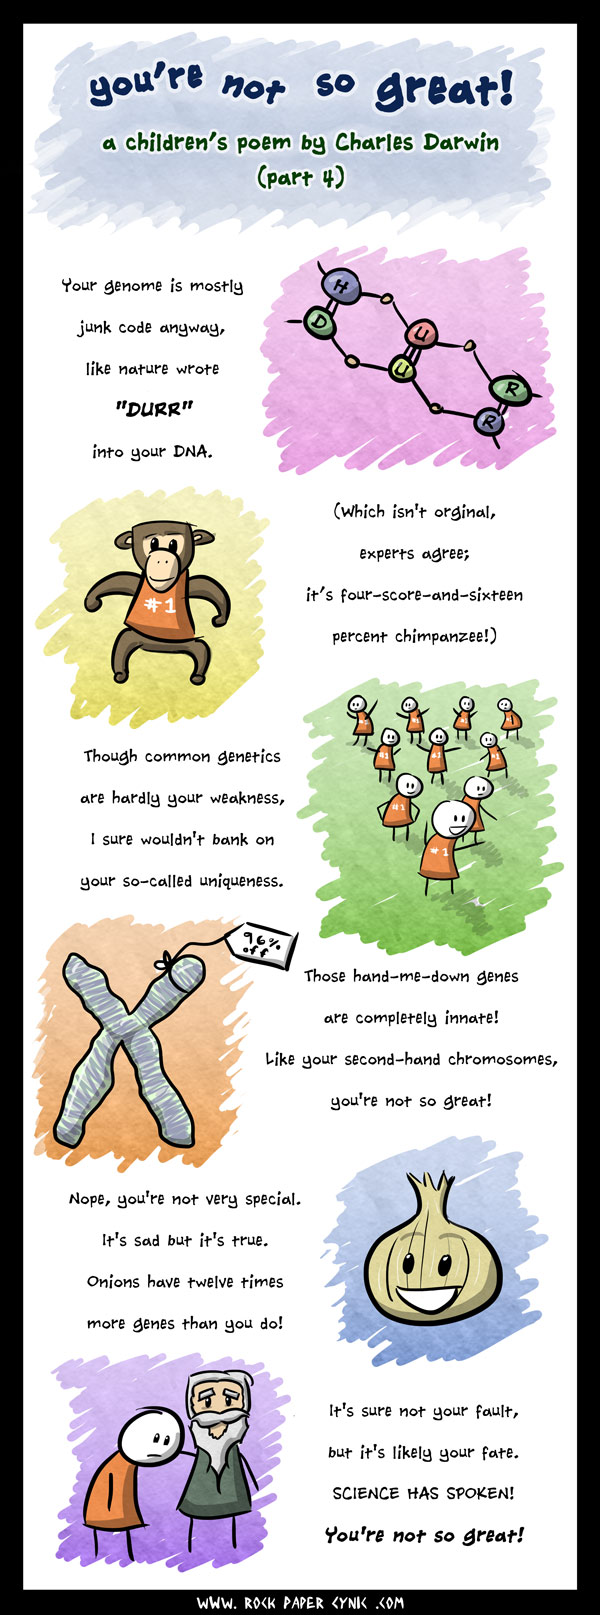 you're not so great!
a children's poem by Charles Darwin
(part 4)
Your genome is mostly
junk code anyway,
like nature wrote
"DURR"
into your DNA.
H
D
U
U
R
R
(Which isn't orginal,
experts agree;
it's four-score-and-sixteen
percent chimpanzee!)
#1
Though common genetics
are hardly your weakness,
I sure wouldn't bank on
your so-called uniqueness.
#1
#1
#1
#1
96%
off
Those hand-me-down genes
are completely innate!
Like your second-hand chromosomes,
you're not so great!
Nope, you're not very special.
It's sad but it's true.
Onions have twelve times
more genes than you do!
It's sure not your fault,
but it's likely your fate.
SCIENCE HAS SPOKEN!
You're not so great!
WWW. ROCK PAPER CYNIC .COM